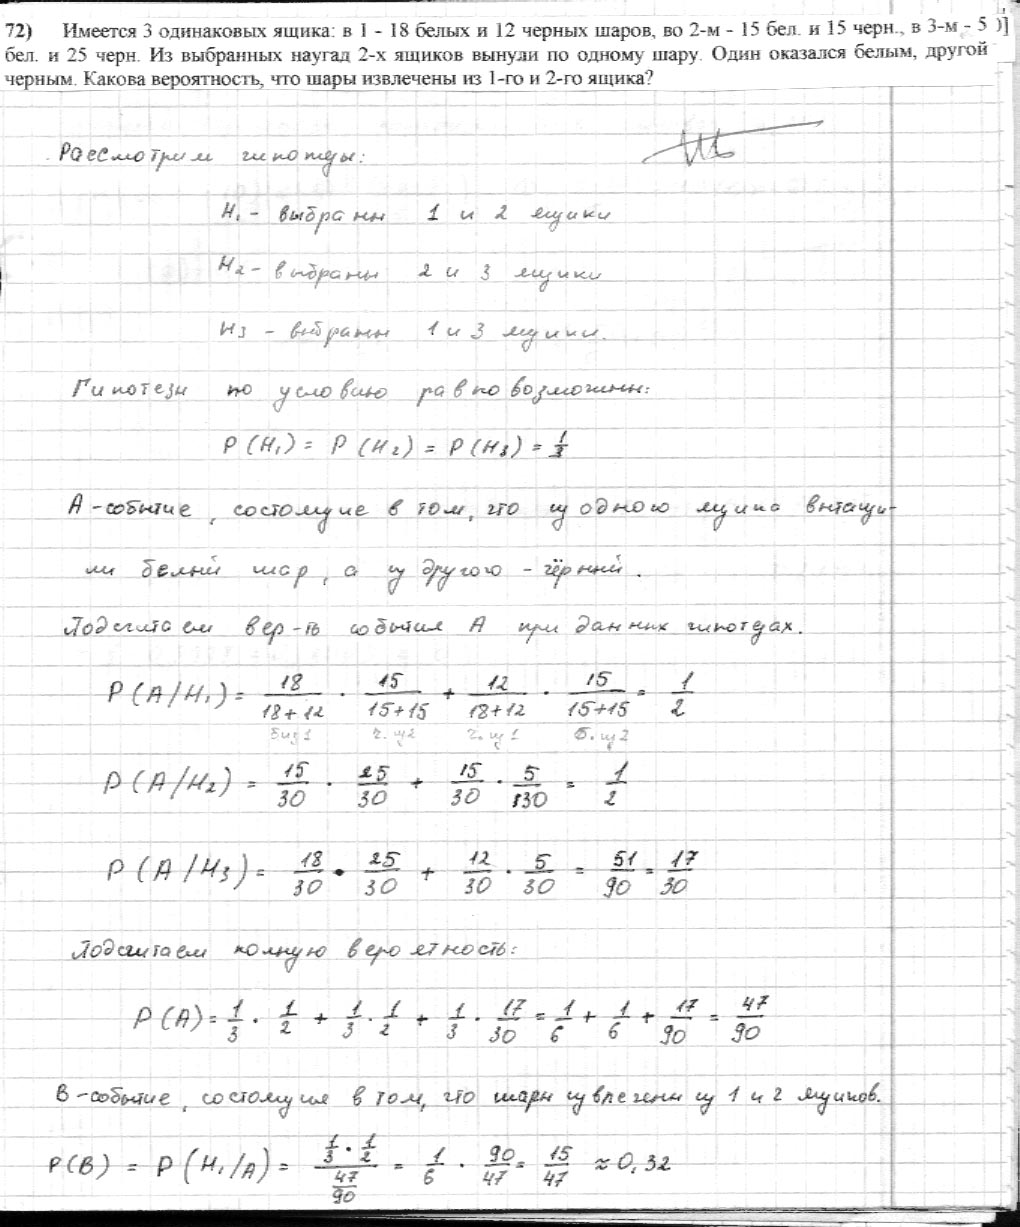 72) Имеется 3 одинаковых ящика: в 1 - 18 белых и 12 черных шаров, во 2-м - 15 бел. и 15 черн., в 3-м - 5
бел. и 25 черн. Из выбранных наугад 2-х ящиков вынули по одному шару. Один оказался белым, другой
черным. Какова вероятность, что шары извлечены из 1-го и 2-го ящика?
Рассмотрим гипотезы:
H₁ - выбраны 1 и 2 ящики
H₂ - выбраны 2 и 3 ящики
H₃ - выбраны 1 и 3 ящики.
Гипотезы по условию равновозможны:
P(H₁) = P(H₂) = P(H₃) = 1/3
A - событие, состоящие в том, что из одного ящика вытащи-
ли белый шар, а из другого - чёрный.
Подсчитаем вер-ть события A при данных гипотезах.
P(A/H₁) = 18/(18+12) · 15/(15+15) + 12/(18+12) · 15/(15+15) = 1/2
б из 1 ч. из 2 ч. из 1 б. из 2
P(A/H₂) = 15/30 · 25/30 + 15/30 · 5/30 = 1/2
P(A/H₃) = 18/30 · 25/30 + 12/30 · 5/30 = 51/90 = 17/30
Подсчитаем полную вероятность:
P(A) = 1/3 · 1/2 + 1/3 · 1/2 + 1/3 · 17/30 = 1/6 + 1/6 + 17/90 = 47/90
B - событие, состоящие в том, что шары извлечены из 1 и 2 ящиков.
P(B) = P(H₁/A) = (1/3 · 1/2)/(47/90) = 1/6 · 90/47 = 15/47 ≈ 0,32